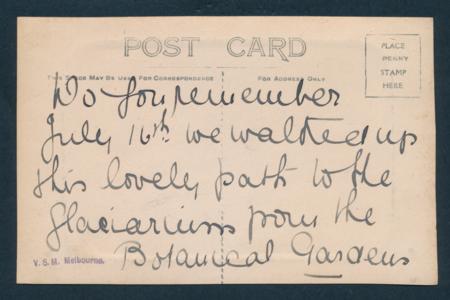 POST CARD
THIS SPACE MAY BE USED FOR CORRESPONDENCE
FOR ADDRESS ONLY
PLACE
PENNY
STAMP
HERE
Do you remember
July 16th we walked up
this lovely path to the
Glaciarium from the
Botanical Gardens
V.S.M. Melbourne.